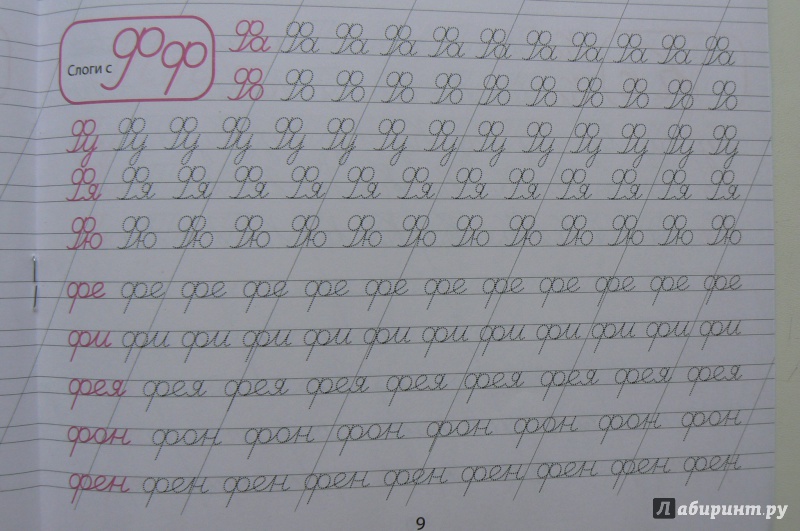 Слоги с Ф ф
Фа Фа Фа Фа Фа Фа Фа Фа Фа Фа Фа
Фо Фо Фо Фо Фо Фо Фо Фо Фо Фо Фо
Фу Фу Фу Фу Фу Фу Фу Фу Фу Фу Фу Фу Фу Фу
Фя Фя Фя Фя Фя Фя Фя Фя Фя Фя Фя Фя Фя
Фю Фю Фю Фю Фю Фю Фю Фю Фю Фю Фю Фю Фю
фе фе фе фе фе фе фе фе фе фе фе фе
фи фи фи фи фи фи фи фи фи фи фи фи
фея фея фея фея фея фея фея фея фея
фон фон фон фон фон фон фон фон
фен фен фен фен фен фен фен фен фен
9
Лабиринт.ру